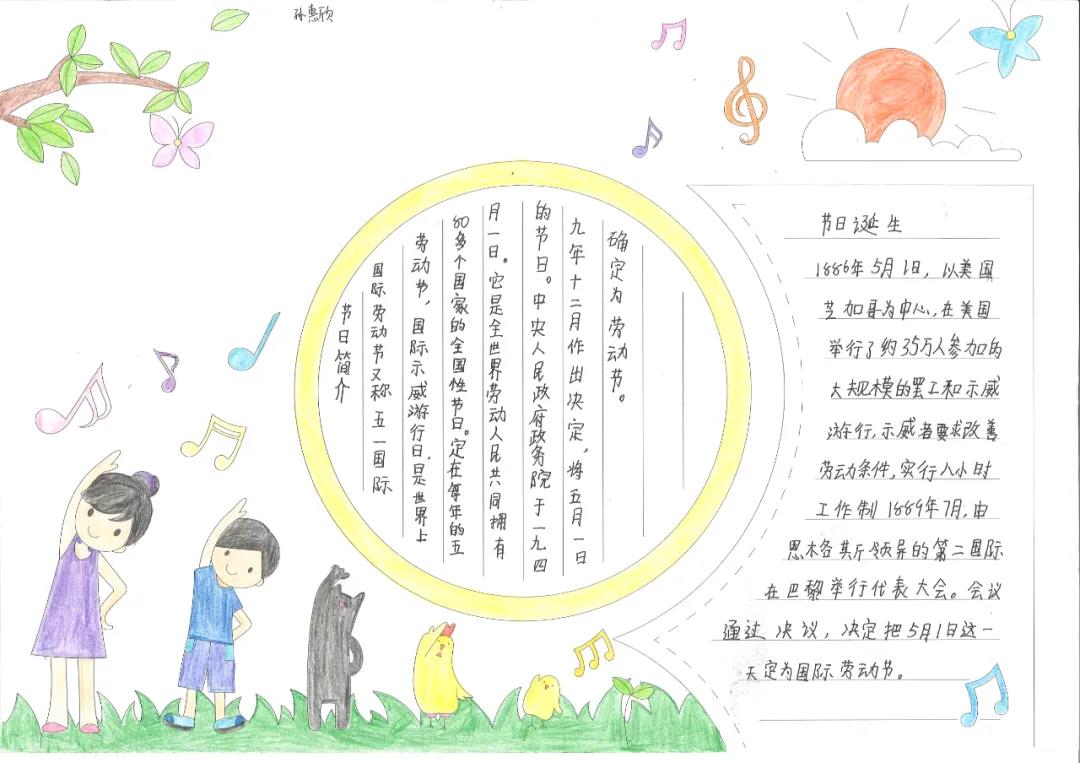 孙惠欣
节日简介
国际劳动节又称五一国际
劳动节，国际示威游行日，是世界上
80多个国家的全国性节日。定在每年的五
月一日。它是全世界劳动人民共同拥有
的节日。中央人民政府政务院于一九四
九年十二月作出决定，将五月一日
确定为劳动节。
节日诞生
1886年5月1日，以美国
芝加哥为中心，在美国
举行了约35万人参加的
大规模的罢工和示威
游行，示威者要求改善
劳动条件，实行八小时
工作制 1889年7月，由
恩格斯领导的第二国际
在巴黎举行代表大会。会议
通过决议，决定把5月1日这一
天定为国际劳动节。